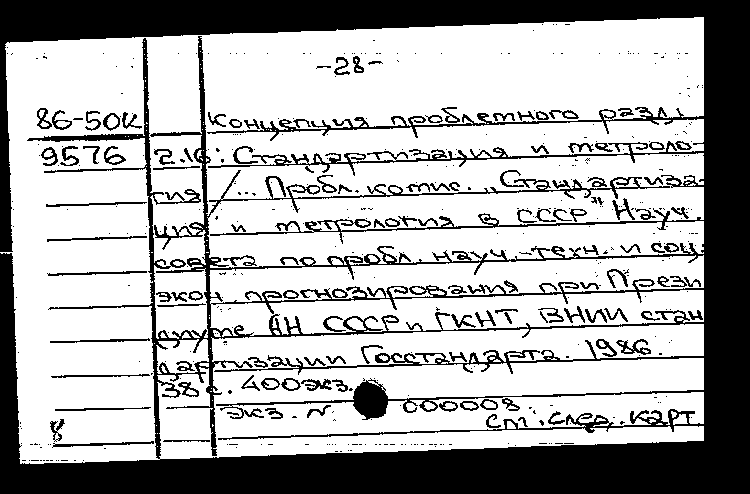 -28-
86-50К Концепция проблемного разд.
9576 2.16: Стандартизация и метроло-
гия / ... Пробл. комис. „Стандартиза-
ция и метрология в СССР" Науч.
совета по пробл. науч.-техн. и соц.-
экон. прогнозирования при Прези
диуме АН СССР и ГКНТ, ВНИИ стан
дартизации Госстандарта. 1986.
38 с. 400 экз.
Экз. N 000008.
8 См. след. карт.